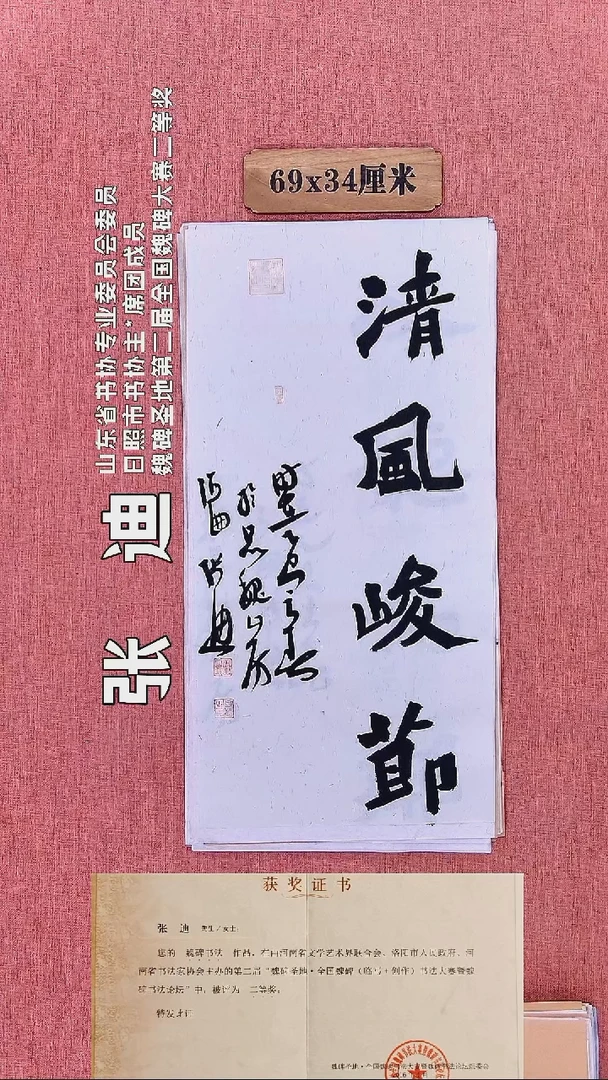 69x34厘米
清风峻节
张迪
山东省书协专业委员会委员
日照市书协主*席团成员
魏碑圣地第二届全国魏碑大赛二等奖
获奖证书
张 迪 先生/女士:
您的 魏碑书法 作品,在由河南省文学艺术界联合会、洛阳市人民政府、河
南省书法家协会主办的第二届“魏碑圣地·全国魏碑(临写+创作)书法大赛暨魏
碑书法论坛”中,被评为 二等奖。
特发此证